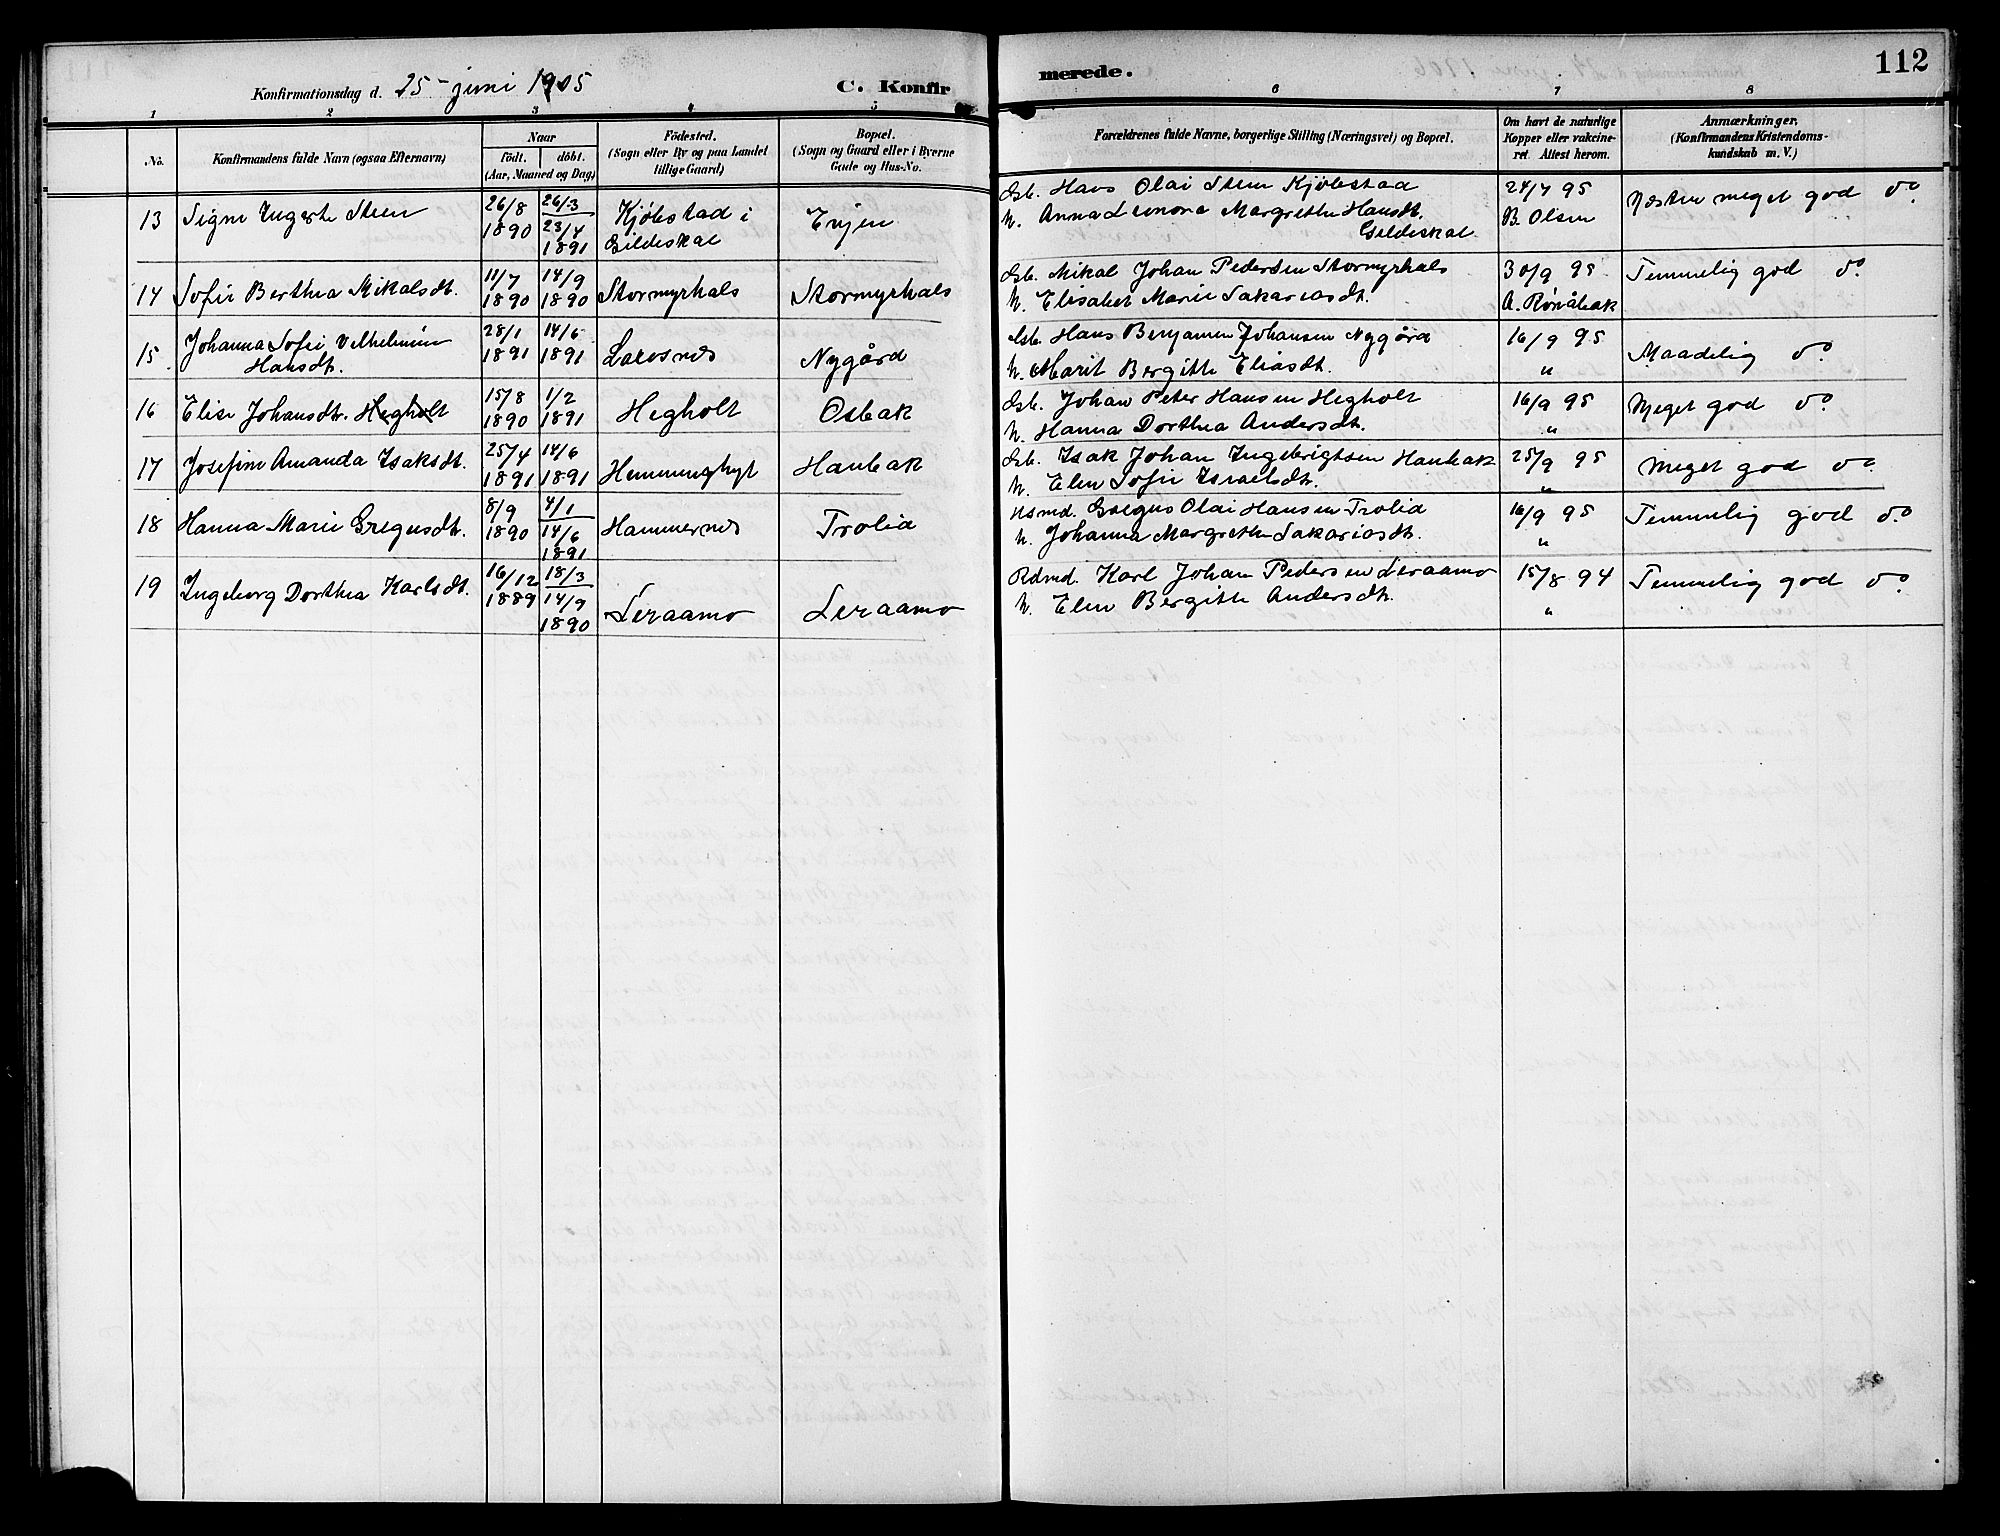 112
Konfirmationsdag d. 25 - juni 1905 C. Konfir merede.
1 2 3 4 5 6 7 8
No. Konfirmandens fulde Navn (ogsaa Efternavn) Naar født. døbt. (Aar, Maaned og Dag) Fødested. (Sogn eller By og paa Landet tillige Gaard) Bopæl. (Sogn og Gaard eller i Byerne Gade og Hus-No. Forældrenes fulde Navne, borgerlige Stilling (Næringsvei) og Bopæl. Om havt de naturlige Kopper eller vakcineret. Attest herom. Anmærkninger, (Konfirmandens Kristendomskundskab m. V.)
13 Signe Steen 26/8 1890 26/3 23/4 1891 Kjøbstad i Gildeskal Evjen Gb. Hans Olai Steen Kjøbstad
h. Anna Leonora Margrethe Hansdt. Gildeskal 24/7 95 B. Olsen Næsten meget god do
14 Sofie Berthea Mikalsdt. 11/7 1890 14/9 1890 Stormyrhals Stormyrhals Gb. Mikal Johan Pedersen Stormyrhals
h. Elisabet Marie Sakariasdt. 30/9 95 Temmelig god do
15 Johanna Sofie Vilhelmine Hansdt. 28/1 1891 14/6 1891 Nygård Gb. Hans Benjamin Johansen Nygård
h. Marit Bergitte Eliasdt. 16/9 95 " Maadelig do
16 Elise Johansdt. Hegholt 15/8 1890 1/2 1891 Hegholt Osbak Gb. Johan Peter Hansen Hegholt
h. Hanna Dorthea Andersdt. 16/9 95 " Meget god do
17 Josefine Amanda Isaksdt. 25/4 1891 14/6 1891 Haubak Gb. Isak Johan Ingebrigtsen Haubak
h. Elen Sofie Israelsdt. 25/9 95 " Meget god do
18 Hanna Marie Gregusdt. 8/9 1890 4/1 14/6 1891 Hammernes Trolid Hsmd. Gregus Olai Hansen Trolid
h. Johanna Margrethe Sakariasdt. 16/9 95 " Temmelig god do
19 Ingeborg Dorthea Karlsdt. 16/12 1889 18/3 14/9 1890 Leraamo Leraamo Rdmd. Karl Johan Pedersen Leraamo
h. Elen Bergitte Andersdt. 15/8 94 " Temmelig god do